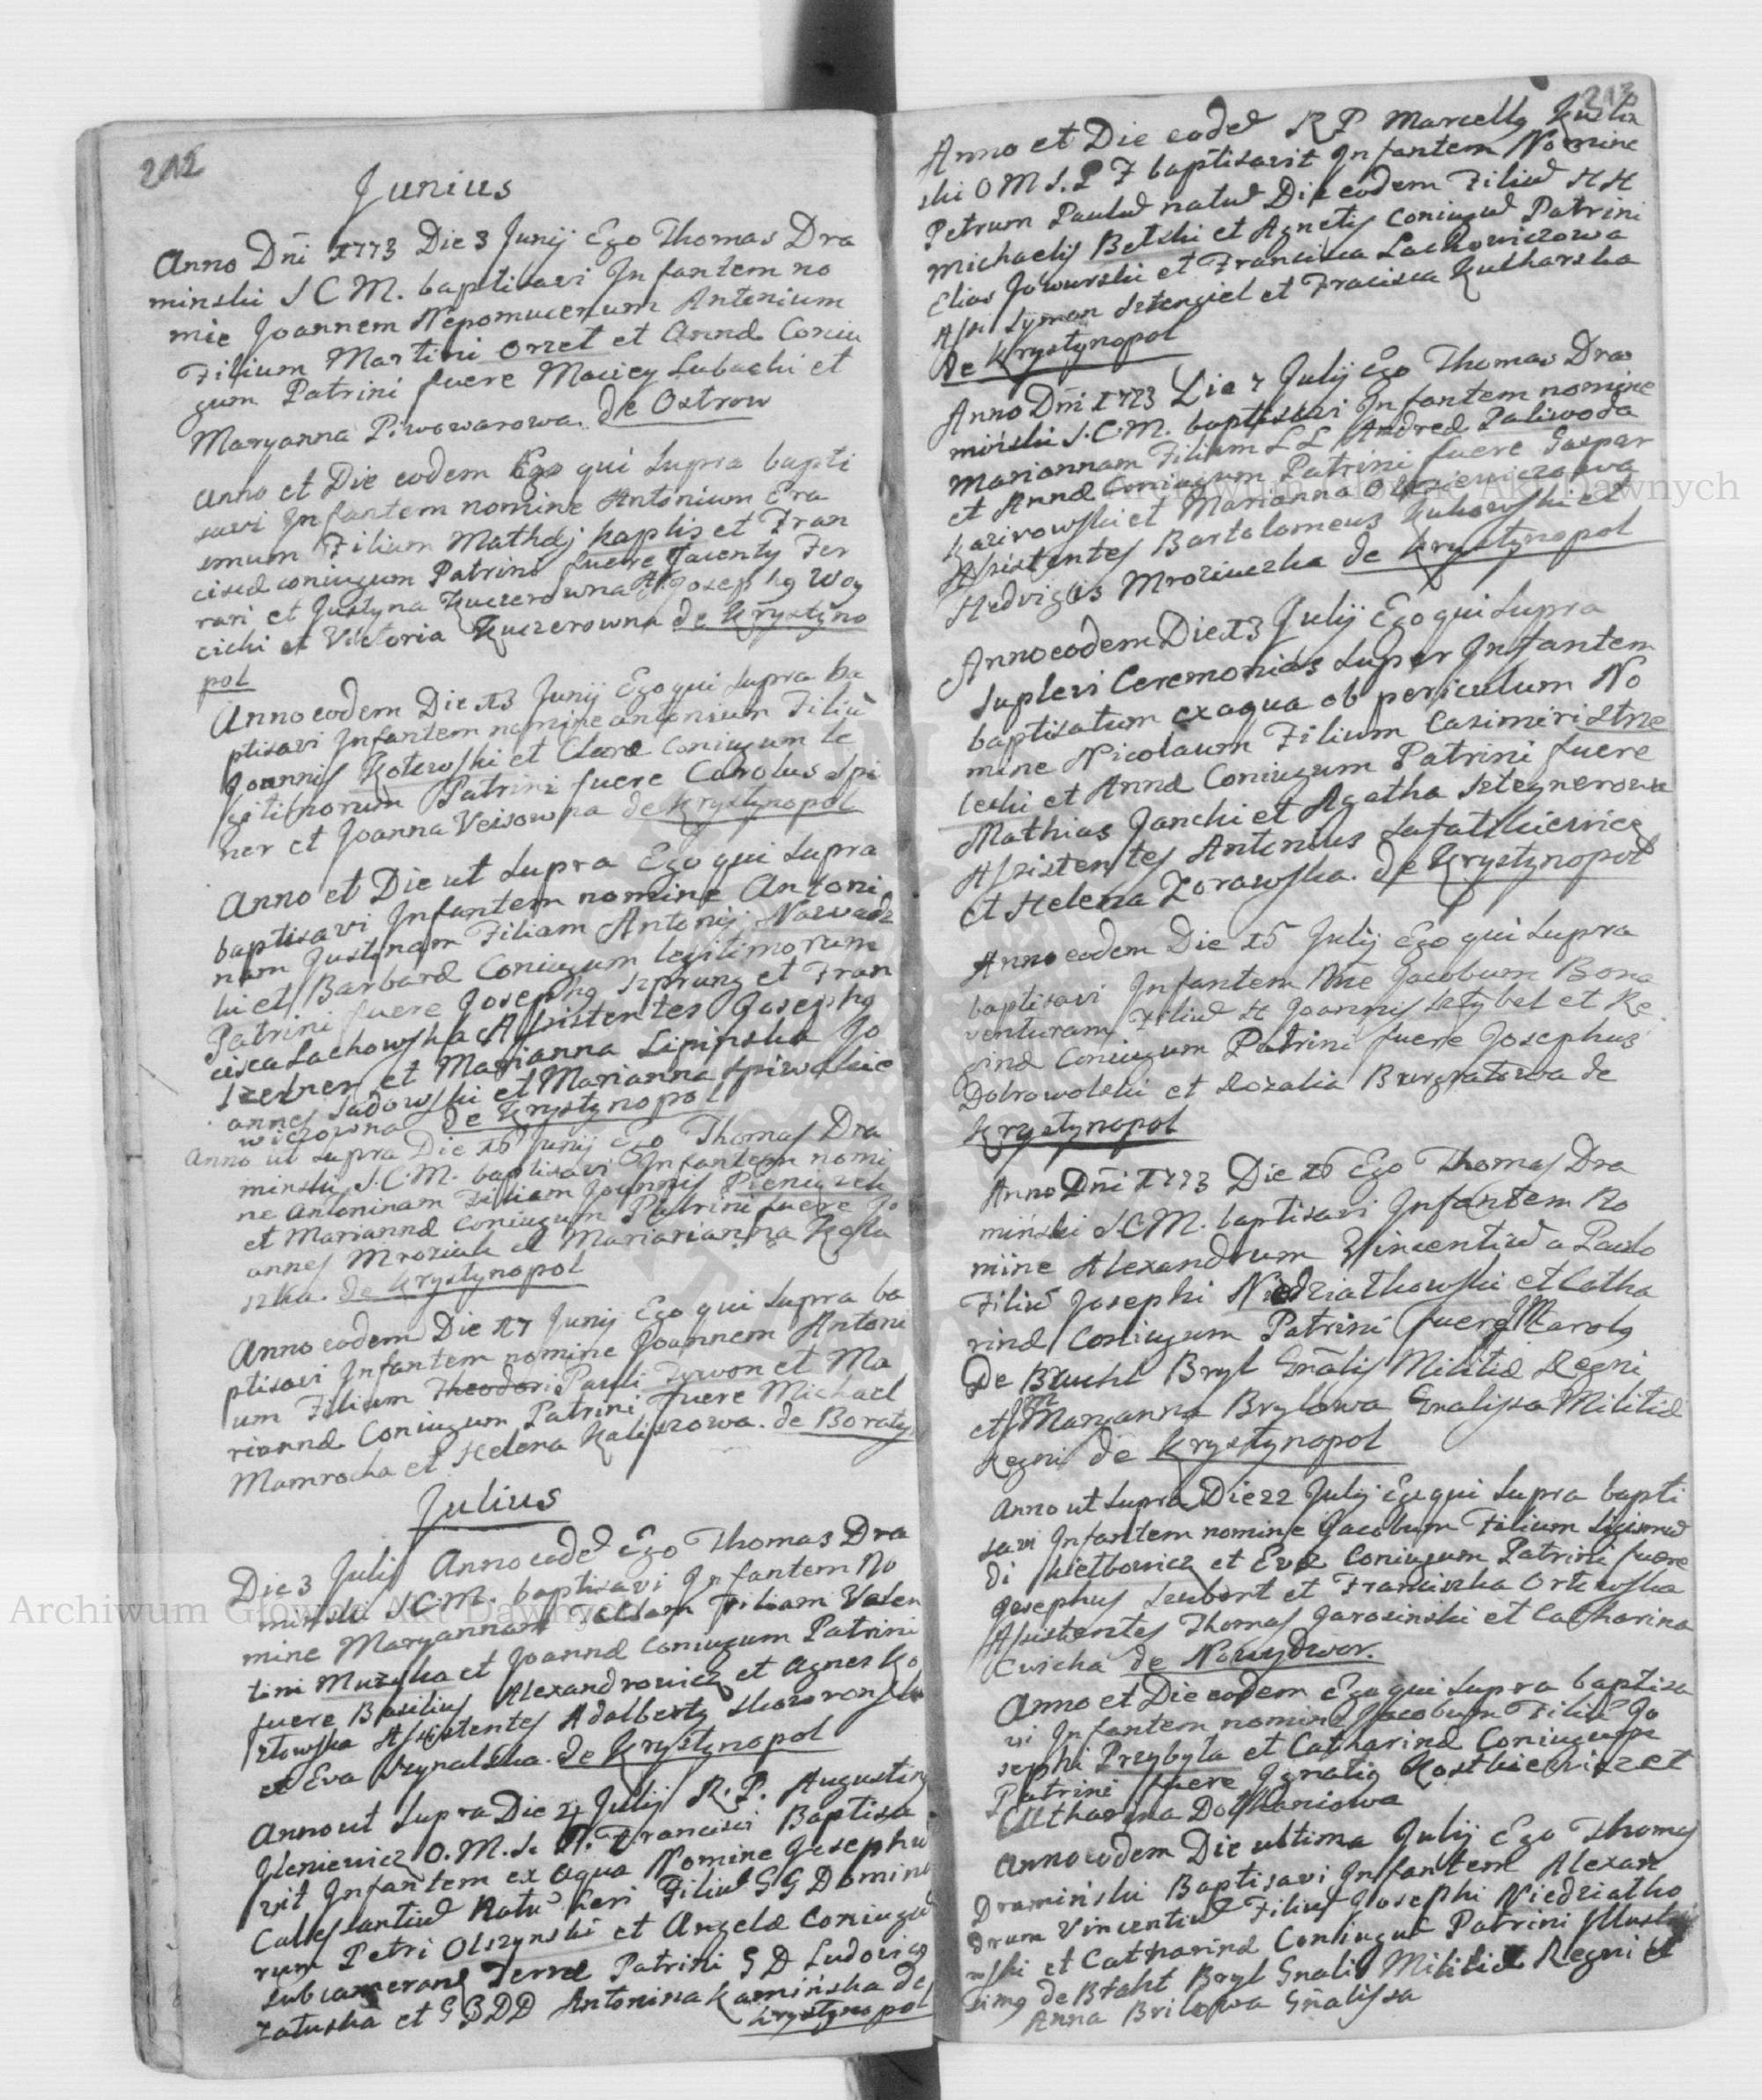 212
Junius
Anno Dni 1773 Die 3 Junij Ego Thomas Dra
minski S C M. baptisavi Infantem no
mie Joannem Nepomucenum Antonium
Filium Martini Orzet et Annæ Coniu
gum Patrini fuere Maciey Lubachi et
Maryanna Piwowarowa. de Ostrow
Anno et Die eodem Ego qui Supra bapti
savi Infantem nomine Antonium Era
smum Filium Mathej Kaplis et Fran
ciscæ coniugum Patrini fuere Jacenty Fer
rari et Justyna Kuczerowna Josephg Woy
cicki et Victoria Kuczerowna de Krystÿno
pol
Anno eodem Die 13 Junij Ego qui Supra ba
ptisavi Infantem nomine antonium Filiu
Joannis Kotowski et Claræ Coniugum le
gitimorum Patrini fuere Carolus Spi
ner et Joanna Veisowna de Krystynopol
Anno et Die ut Supra Ego qui Supra
baptisavi Infantem nomine Antoni
nam Justinam Filiam Antonij Nawadz
ki et Barbaræ Coniugum legitimorum
Patrini fuere Josephg Szprung et Fran
cisca Lachowska Assistentes Josephg
et Marianna Lipinska Jo
annes Sadowski et Marianna Spiwakie
wiczowna de Krystynopol
Anno ut Supra Die 16 Junij Ego Thomas Dra
minski S.C.M. baptisavi Infantem nomi
ne Antoninam Filiam Joannis Pieniazek
et Mariannæ Coniugum Patrini fuere Jo
annes Mroziak et Mariarianna Kostu
szka. de Krystynopol
Anno eodem Die 17 Junij Ego qui Supra ba
ptisavi Infantem nomine Joannem Antoni
um Filium Theodori Pauli Zywon et Ma
riannæ Coniugum Patrini fuere Michael
Mamrocha et Helena Kaliszowa. de Boraty
Julius
Die 3 Julij Anno eode Ego Thomas Dra
minski S.C.M. baptisavi Infantem No
mine Maryannam Filiam Valen
tini Muzyka et Joannæ Coniugum Patrini
fuere Basilius Alexandrowicz et Agnes Ko
ztowska Assistentes Adalbertg Skowronski
et Eva de Krystynopol
Anno ut Supra Die 4 Julij R. P. Augusting
Gleniewicz O. M. S. P. Francisci Baptisa
vit Infantem ex aqua Nomine Josephu
Calessantiu Natu heri Filiu G G Domino
rum Petri Olszynski et Angelæ Coniugu
Subcameran Terræ Patrini G D Ludovicg
Zatuska et G D D Antonina Kaminska de
Krystynopol
213
Anno et Die eode R P Marcellg Kustra
ski O M S. P F baptisavit Infantem Nomine
Petrum Paulu natu Die eodem Filiu H H
Michaelis Betski et Agnetis Coniugu Patrini
Elias Jaworski et Francisca Lachowiczowa
Assi Symon Sztengiel et Fracisca Kulharska
de Krystynopol
Anno Dni 1773 Die 7 Julij Ego Thomas Dra
minski S.C.M. baptisavi Infantem nomine
Mariannam Filiam L L Andreæ Paliwoda
et Annæ Coniugum Patrini fuere Gasper
Kazirowski et Marianna
Assistentes Bartolomeus Zukowski et
Hedvigis Mroziuczka de Krystynopol
Anno eodem Die 13 Julij Ego qui Supra
Suplevi Ceremonias Super Infantem
baptisatum ex aqua ob periculum No
mine Nicolaum Filium Casimiri Strze
lecki et Annæ Coniugum Patrini fuere
Mathias Janchi et Agatha Sztegnerowa
Assistentes Antonius Safatkiewicz
et Helena Zorawska. de Krystynopol
Anno eodem Die 15 Julij Ego qui Supra
baptisavi Infantem Nne Jacobum Bona
venturam Filiu H Joannis Satybel et Re
ginæ Coniugum Patrini fuere Josephus
Dobrowolski et Rozalia Burgratowa de
Krystynopol
Anno Dni 1773 Die 16 Ego Thomas Dra
minski S C M. baptisavi Infantem No
mine Alexandrum Vincentiu a Paulo
Filiu Josephi Niedziatkowski et Catha
rinæ Coniugum Patrini fuere Karolg
De Bruchl Bryl Gnalis Militiæ Regni
et Maryanna Brylowa Gnalissa Militiæ
Regni de Krystynopol
Anno ut Supra Die 22 Julij Ego qui Supra bapti
savi Infantem nomine Jacobum Filium Sigismu
di Kietbowicz et Evæ Coniugum Patrini fuere
Josephus Szubert et Franciszka Ortowska
Assistentes Thomas Jarosinski et Catharina
Cwicha de Nowydwor.
Anno et Die eodem Ego qui Supra baptisa
vi Infantem nomine Jacobum Filiu Jo
sephi Przybyta et Catharinæ Coniugum
Patrini fuere Ignatig Kostkiewicz et
Catharina
Anno eodem Die ultima Julij Ego Thomas
Draminski Baptisavi Infantem Alexan
drum Vincentiu Filiu Josephi Niedziatko
wski et Catharinæ Coniugu Patrini Illustris
simg de Bryl Gnalis Militiæ Regni et
Anna Brilowa Gnalissa
Archiwum Główne Akt Dawnych
Archiwum Główne Akt Dawnych